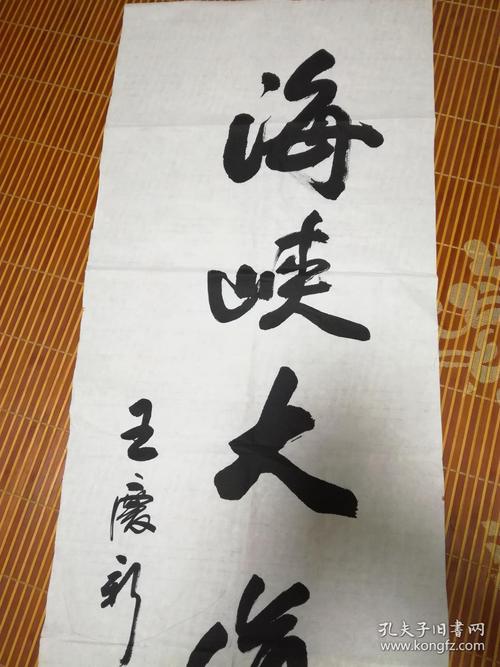 海峡大
王慶新
孔夫子旧书网
www.kongfz.com